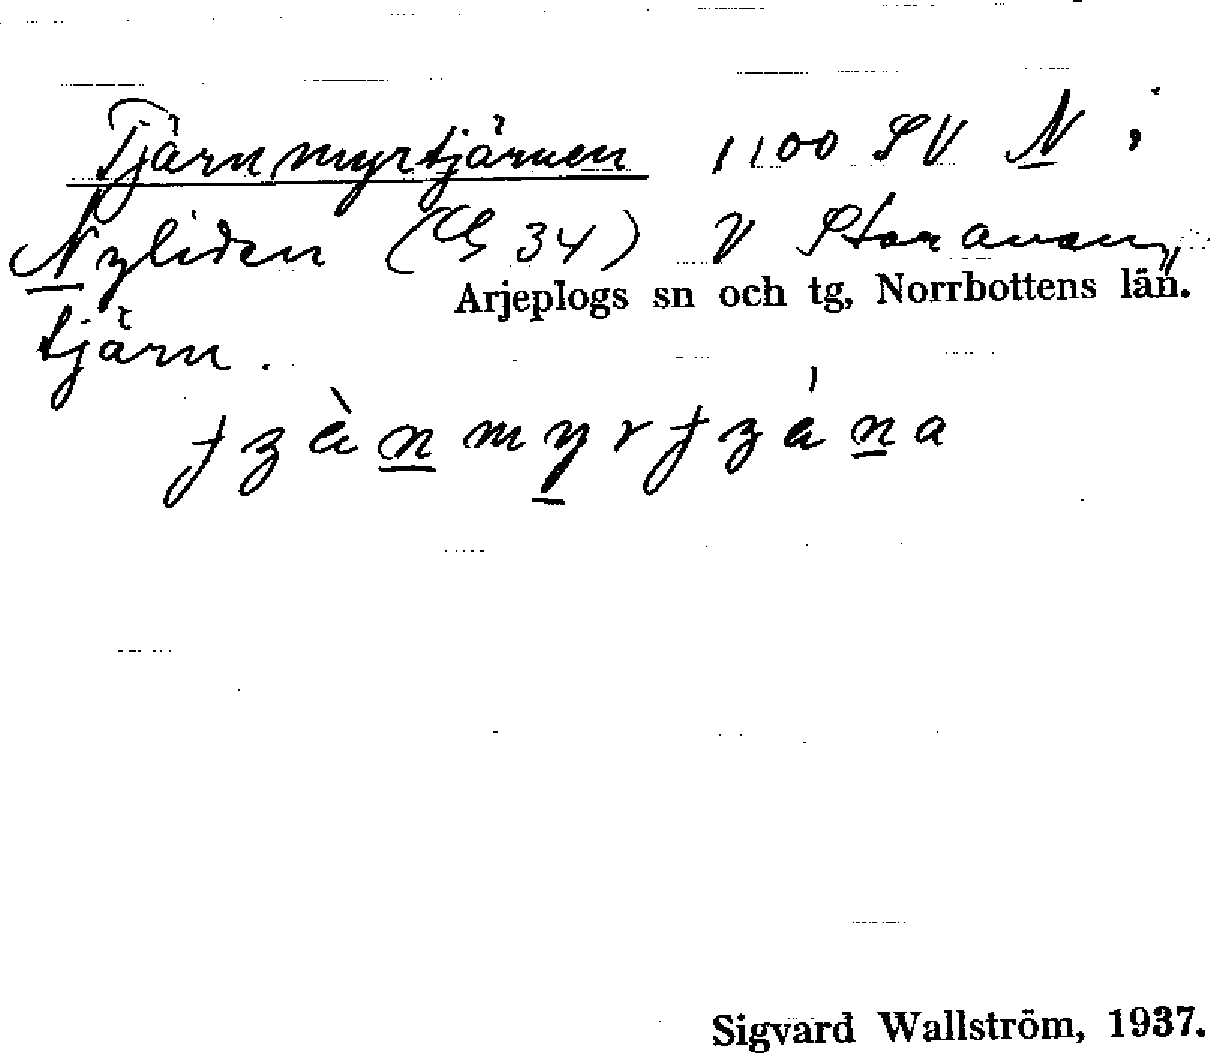 Tjärnmyrtjärnen 1100 SV N i
Nyliden (CG 34) V Storavan,
Arjeplogs sn och tg, Norrbottens län.
tjärn.
Sigvard Wallström, 1937.